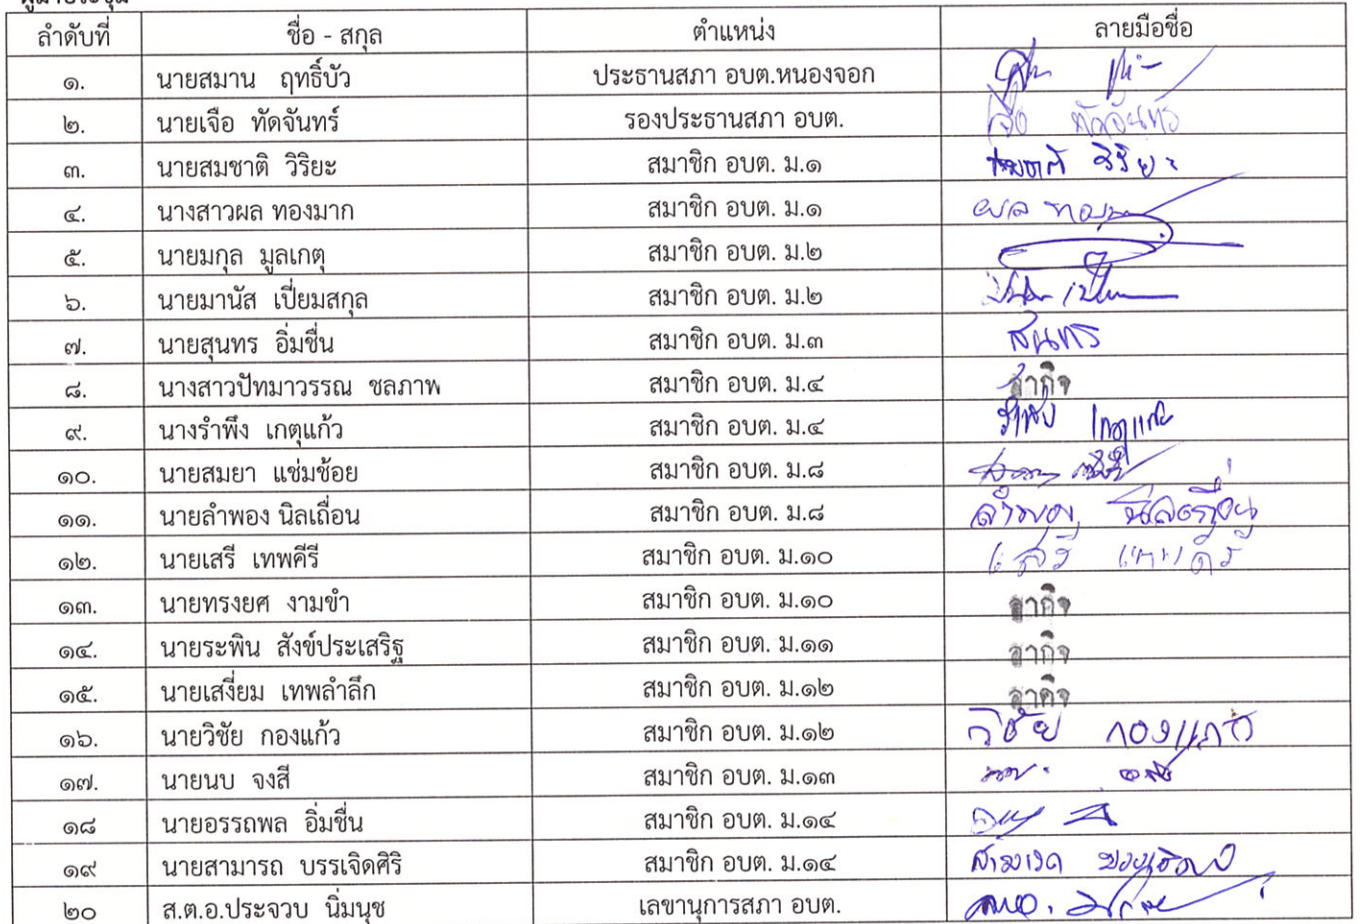 ผู้มาประชุม
ลำดับที่ ชื่อ - สกุล ตำแหน่ง ลายมือชื่อ
๑. นายสมาน ฤทธิ์บัว ประธานสภา อบต.หนองจอก
๒. นายเจือ ทัดจันทร์ รองประธานสภา อบต. เจือ ทัดจันทร์
๓. นายสมชาติ วิริยะ สมาชิก อบต. ม.๑ สมชาติ วิริยะ
๔. นางสาวผล ทองมาก สมาชิก อบต. ม.๑ ผล
๕. นายมกุล มูลเกตุ สมาชิก อบต. ม.๒
๖. นายมานัส เปี่ยมสกุล สมาชิก อบต. ม.๒
๗. นายสุนทร อิ่มชื่น สมาชิก อบต. ม.๓ สุนทร
๘. นางสาวปัทมาวรรณ ชลภาพ สมาชิก อบต. ม.๔ ลากิจ
๙. นางรำพึง เกตุแก้ว สมาชิก อบต. ม.๔ รำพึง เกตุแก้ว
๑๐. นายสมยา แช่มช้อย สมาชิก อบต. ม.๘
๑๑. นายลำพอง นิลเถื่อน สมาชิก อบต. ม.๘ ลำพอง นิลเถื่อน
๑๒. นายเสรี เทพคีรี สมาชิก อบต. ม.๑๐ เสรี เทพคีรี
๑๓. นายทรงยศ งามขำ สมาชิก อบต. ม.๑๐ ลากิจ
๑๔. นายระพิน สังข์ประเสริฐ สมาชิก อบต. ม.๑๑ ลากิจ
๑๕. นายเสงี่ยม เทพลำลึก สมาชิก อบต. ม.๑๒ ลากิจ
๑๖. นายวิชัย กองแก้ว สมาชิก อบต. ม.๑๒ วิชัย กองแก้ว
๑๗. นายนบ จงสี สมาชิก อบต. ม.๑๓
๑๘ นายอรรถพล อิ่มชื่น สมาชิก อบต. ม.๑๔
๑๙ นายสามารถ บรรเจิดศิริ สมาชิก อบต. ม.๑๔ สามารถ
๒๐ ส.ต.อ.ประจวบ นิ่มนุช เลขานุการสภา อบต.